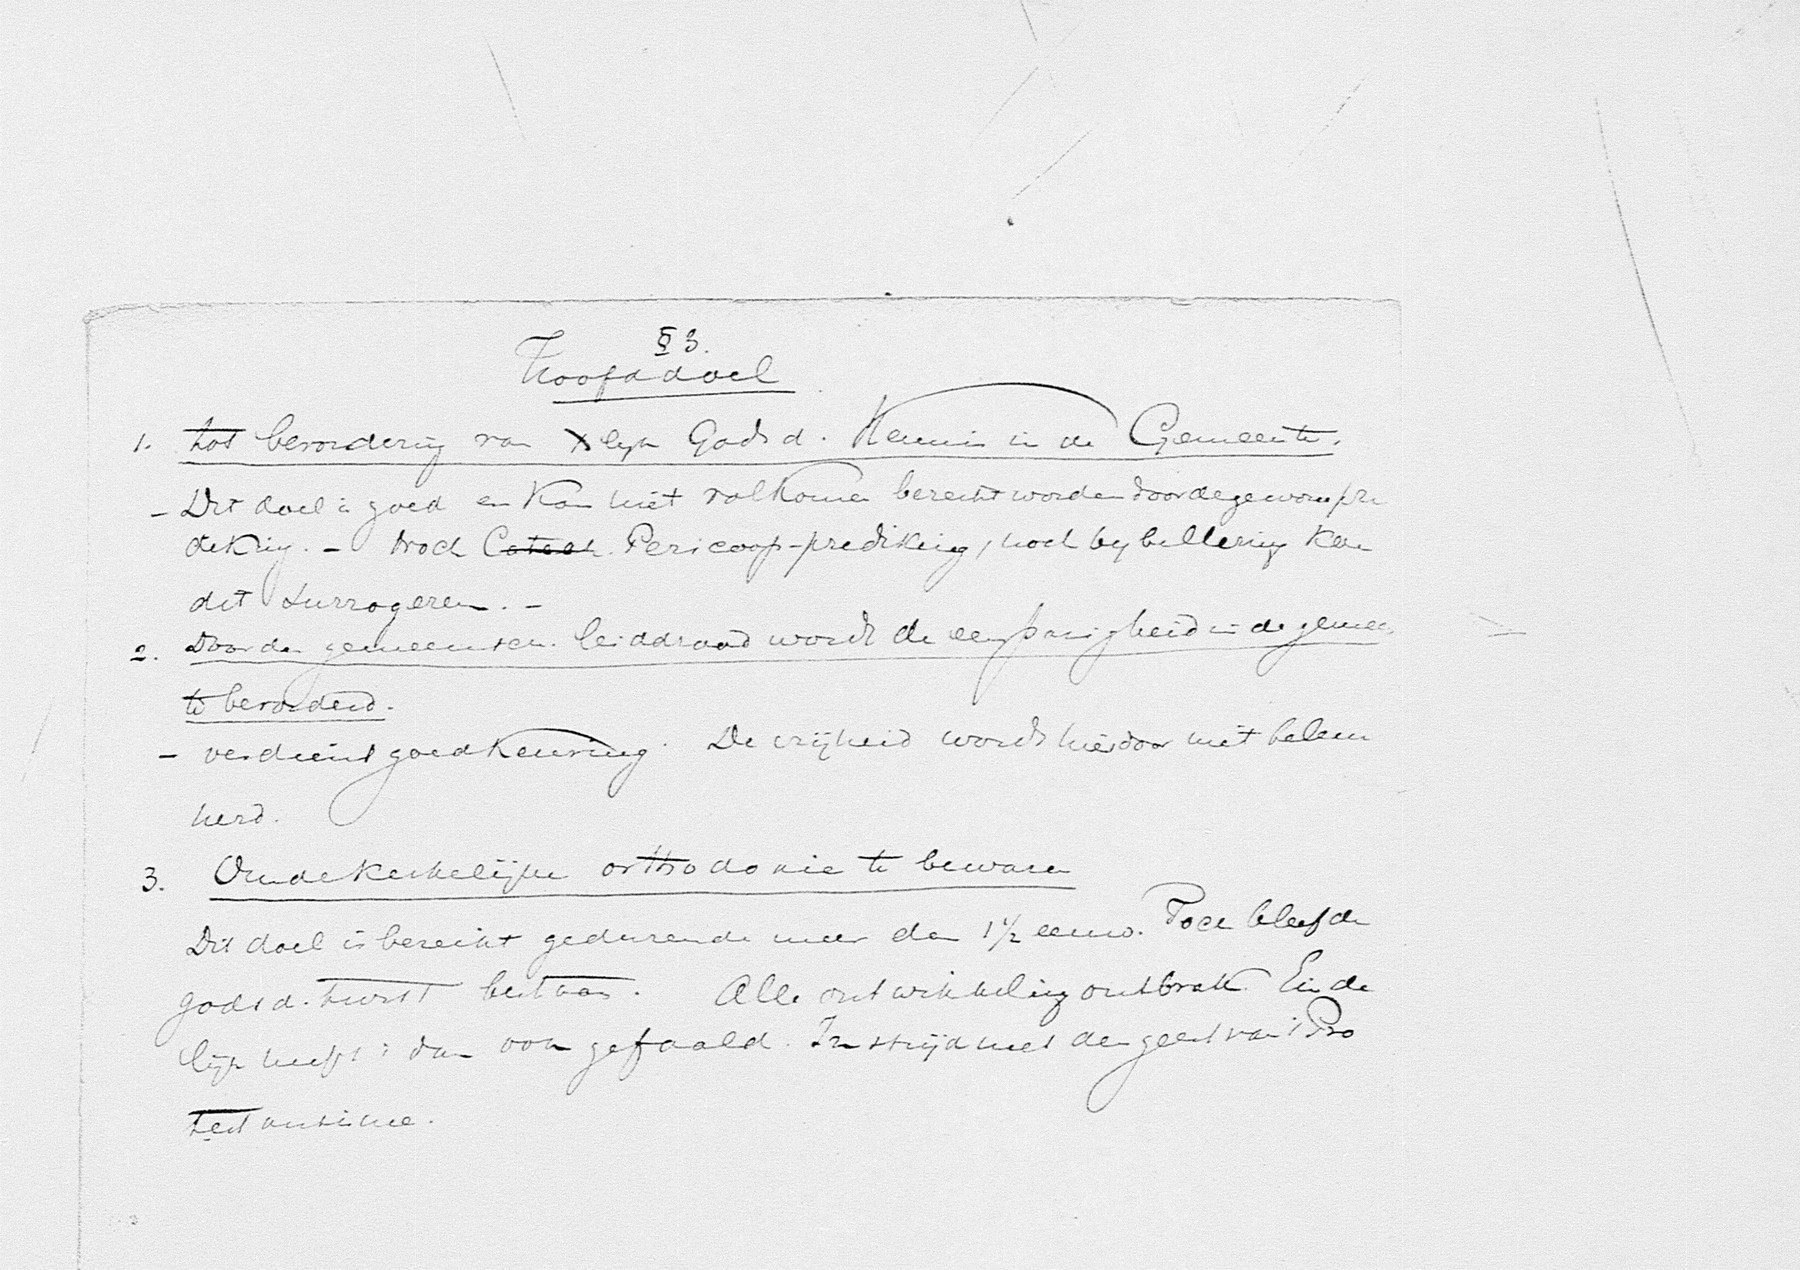 § 3.
Hoofddoel
1. tot bevordering van Xlijk Godsd. Kennis in de Gemeente.
- Dit doel is goed en kan niet volkomen bereikt worden door de gewone pre
diking. - Noch Catech. Pericoop-prediking, noch bybellezing kan
dit surrogeren. -
2. Door den gemeensch. leiddraad wordt de eenparigheid in de gemeen
te bevorderd.
- verdient goedkeuring. De vrijheid wordt hierdoor niet belem
merd.
3. Om de Kerkelijke orthodoxie te bewaren
Dit doel is bereikt gedurende meer dan 1 1/2 eeuw. Toen bleef de
godsd. twist bestaan. Alle ontwikkeling ontbrak. Einde
lijk heeft 't dan ook gefaald. In strijd met den geest van 't Pro
testantisme.